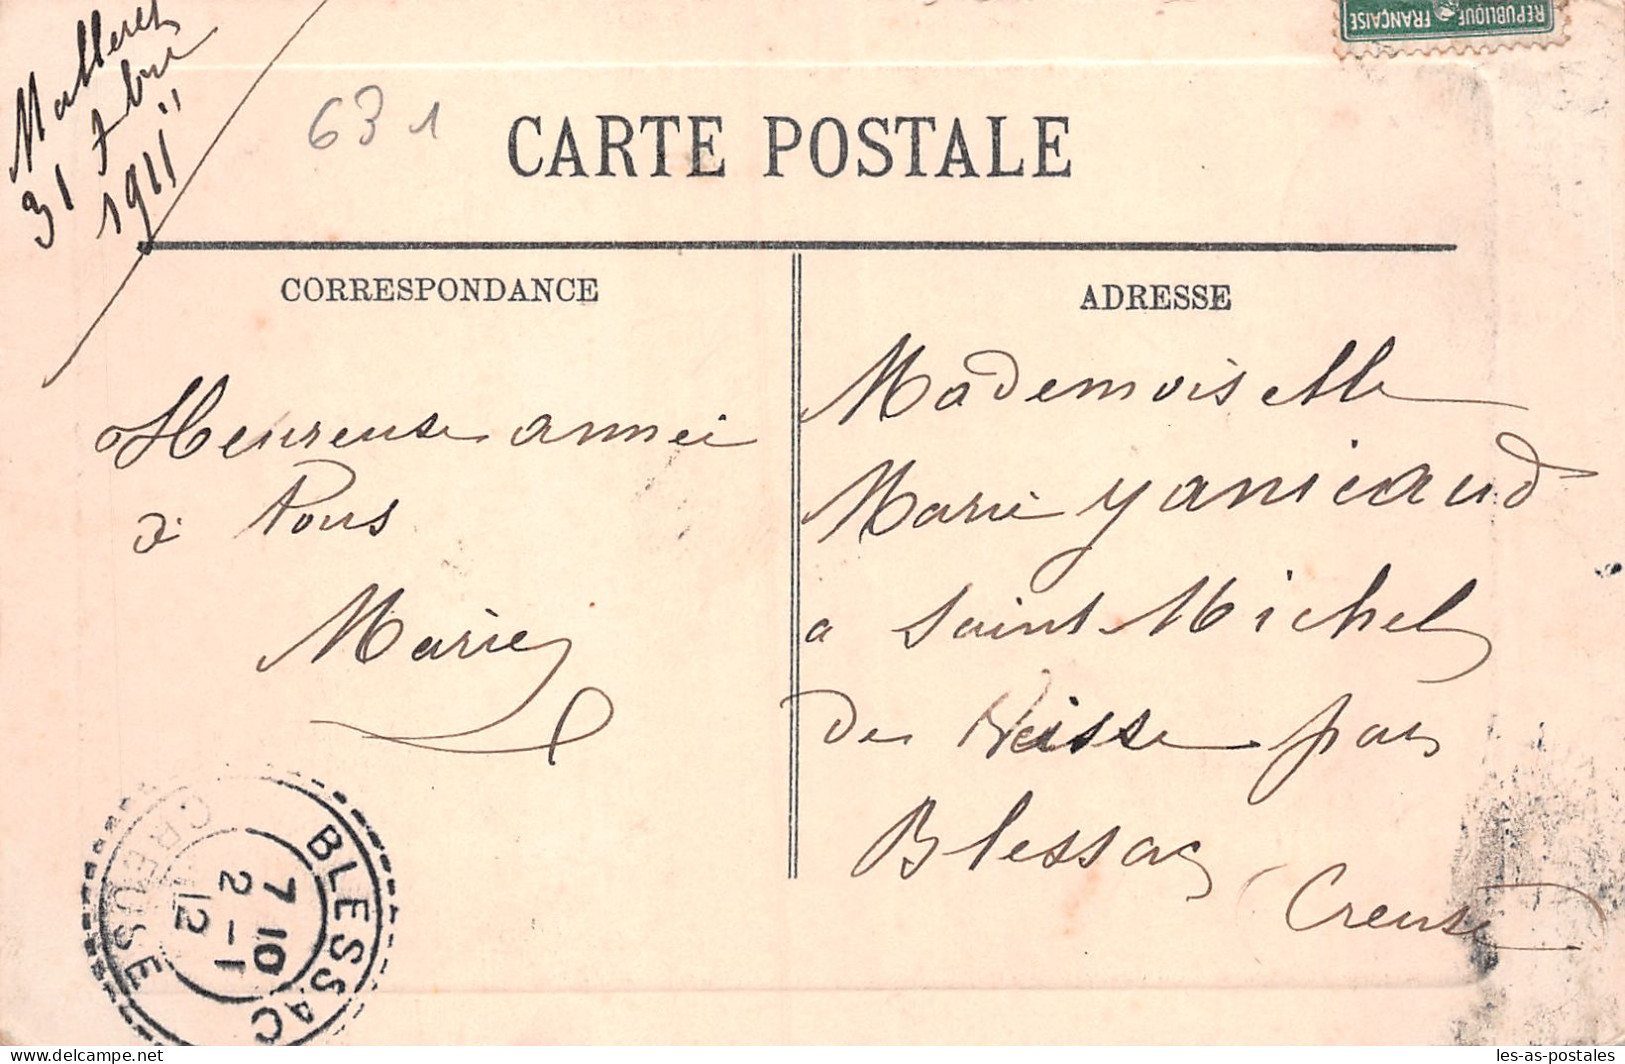 Malleret
31 7bre
1911
631
REPUBLIQUE FRANÇAISE
CARTE POSTALE
CORRESPONDANCE
Heureuse année
à Tous
Marie
ADRESSE
Mademoiselle
Marie Yanicaud
a Saint Michel
de Veisse par
Blessac
Creuse
BLESSAC
7 10
2 - 1
12
CREUSE
delcampe.net
les-as-postales